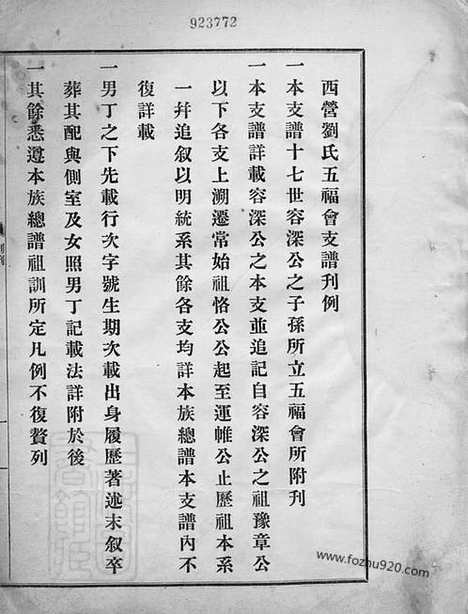 923772
西營劉氏五福會支譜刊例
一本支譜十七世容深公之子孫所立五福會所附刊
一本支譜詳載容深公之本支並追記自容深公之祖豫章公
以下各支上溯遷常始祖恪公公起至運帷公止歷祖本系
一幷追叙以明統系其餘各支均詳本族總譜本支譜內不
復詳載
一男丁之下先載行次字號生期次載出身履歷著述末叙卒
葬其配與側室及女照男丁記載法詳附於後
一其餘悉遵本族總譜祖訓所定凡例不復贅列
www.fozhu920.com